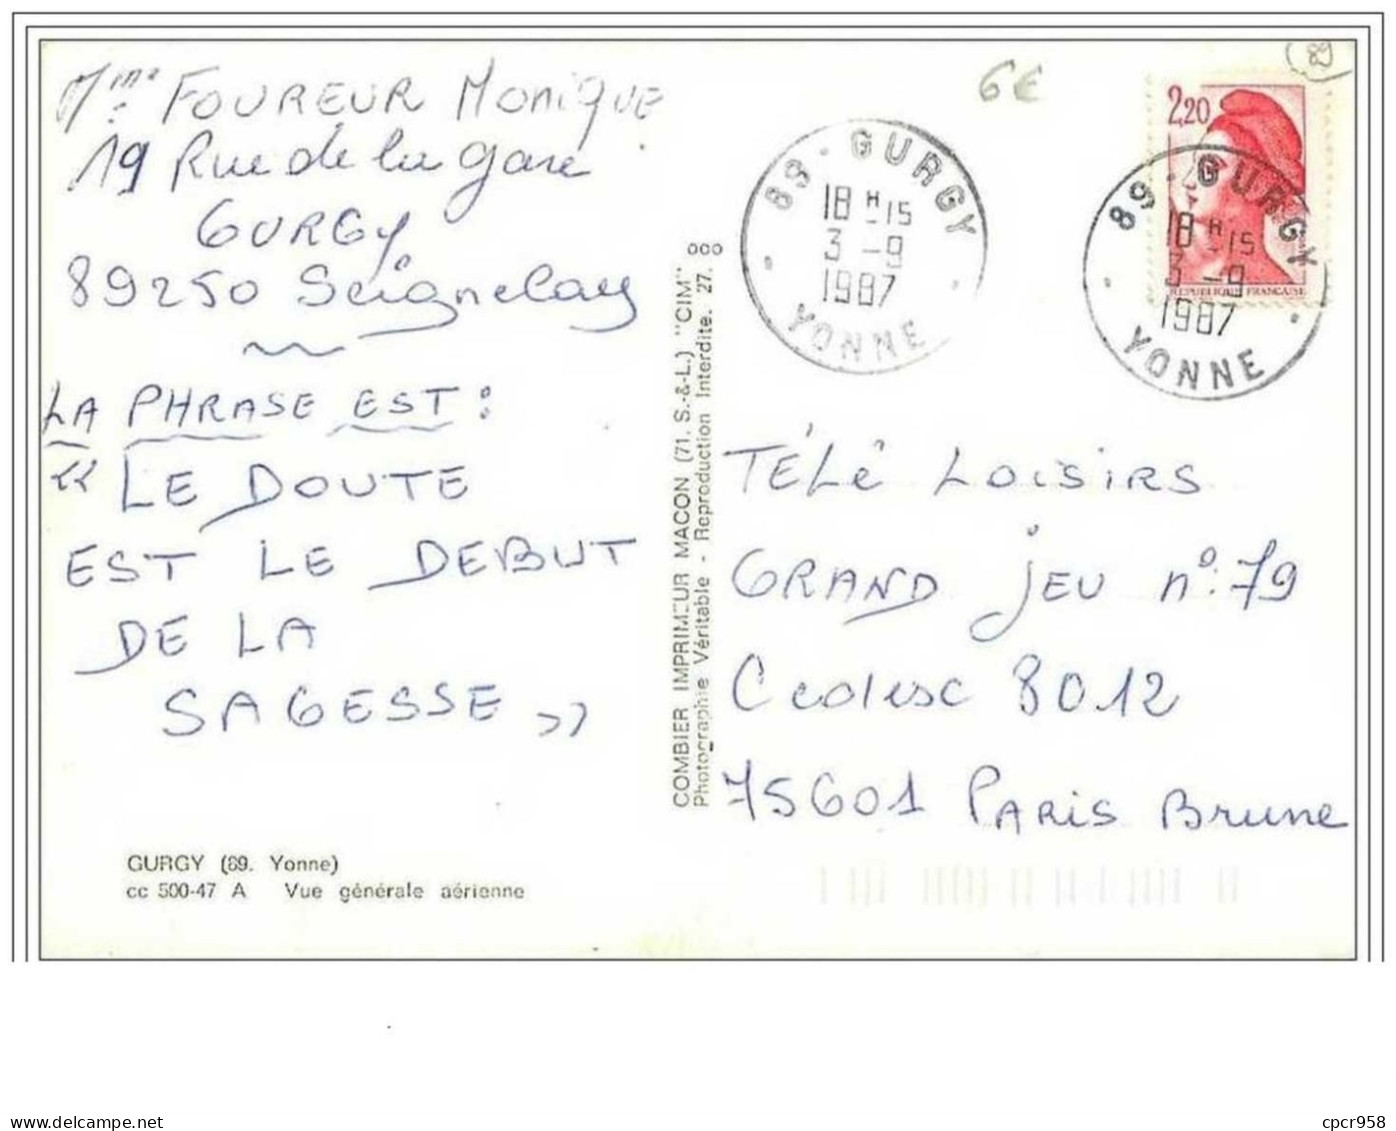 Mme FOUREUR Monique
19 Rue de la gare
GURGY
89250 Seignelay
LA PHRASE EST:
« LE DOUTE
EST LE DEBUT
DE LA
SAGESSE »
GURGY (89. Yonne)
cc 500-47 A Vue générale aérienne
COMBIER IMPRIMEUR MACON (71. S.-&-L.) "CIM"
Photographie Véritable - Reproduction Interdite. 27.
6€
89
89 - GURGY
18 H -15
3 -9
1987
YONNE
2,20
REPUBLIQUE FRANCAISE
89 - GURGY
18 H -15
3 -9
1987
YONNE
TÉLÉ LOISIRS
GRAND JEU n°:79
Cedesc 8012
75601 PARIS Brune
delcampe.net
cpcr958